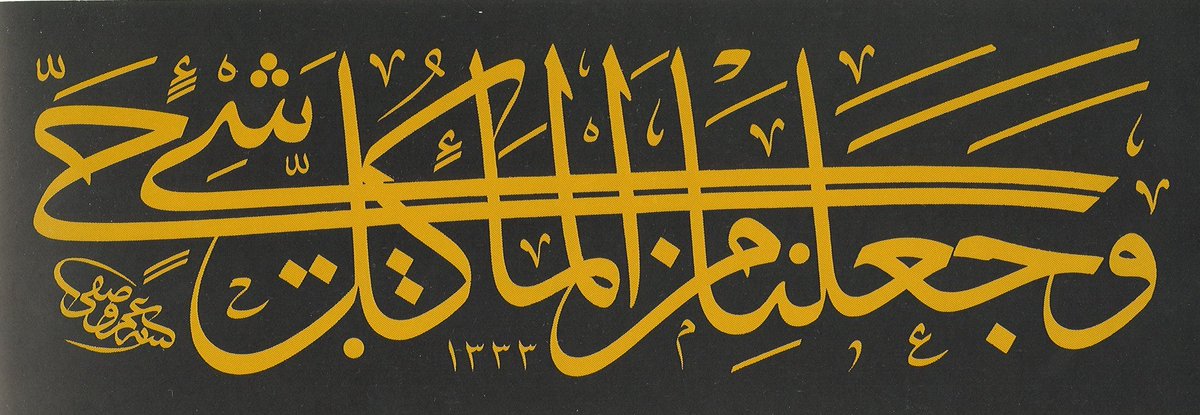 وَجَعَلْنَا مِنَ الْمَاءِ كُلَّ شَيْءٍ حَيٍّ
١٣٣٣
كتبه عمر وصفي